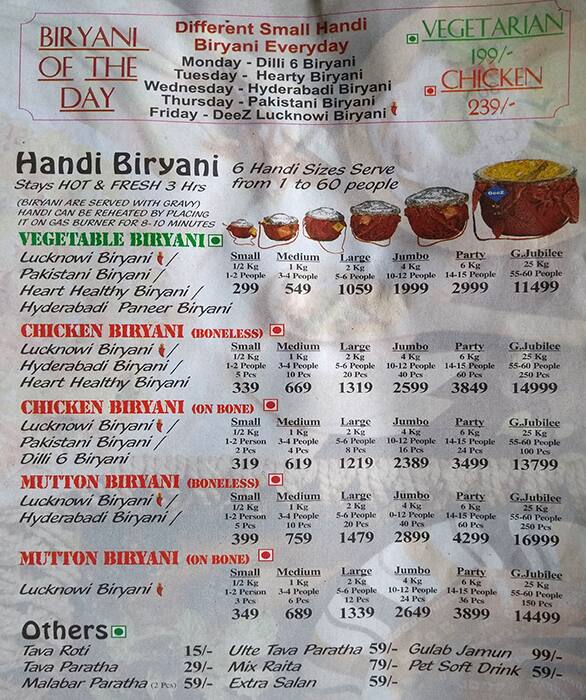 BIRYANI
OF THE
DAY
Different Small Handi
Biryani Everyday
Monday - Dilli 6 Biryani
Tuesday - Hearty Biryani
Wednesday - Hyderabadi Biryani
Thursday - Pakistani Biryani
Friday - DeeZ Lucknowi Biryani
VEGETARIAN
199/-
CHICKEN
239/-
Handi Biryani
Stays HOT & FRESH 3 Hrs
6 Handi Sizes Serve
from 1 to 60 people
(BIRYANI ARE SERVED WITH GRAVY)
HANDI CAN BE REHEATED BY PLACING
IT ON GAS BURNER FOR 8-10 MINUTES
DeeZ
VEGETABLE BIRYANI
Lucknowi Biryani /
Pakistani Biryani /
Heart Healthy Biryani /
Hyderabadi Paneer Biryani
Small Medium Large Jumbo Party G.Jubilee
1/2 Kg 1 Kg 2 Kg 4 Kg 6 Kg 25 Kg
1-2 People 3-4 People 5-6 People 10-12 People 14-15 People 55-60 People
299 549 1059 1999 2999 11499
CHICKEN BIRYANI (BONELESS)
Lucknowi Biryani /
Hyderabadi Biryani /
Heart Healthy Biryani
Small Medium Large Jumbo Party G.Jubilee
1/2 Kg 1 Kg 2 Kg 4 Kg 6 Kg 25 Kg
1-2 People 3-4 People 5-6 People 10-12 People 14-15 People 55-60 People
5 Pcs 10 Pcs 20 Pcs 40 Pcs 60 Pcs 250 Pcs
339 669 1319 2599 3849 14999
CHICKEN BIRYANI (ON BONE)
Lucknowi Biryani /
Pakistani Biryani /
Dilli 6 Biryani
Small Medium Large Jumbo Party G.Jubilee
1/2 Kg 1 Kg 2 Kg 4 Kg 6 Kg 25 Kg
1-2 Person 3-4 People 5-6 People 10-12 People 14-15 People 55-60 People
2 Pcs 4 Pcs 8 Pcs 16 Pcs 24 Pcs 100 Pcs
319 619 1219 2389 3499 13799
MUTTON BIRYANI (BONELESS)
Lucknowi Biryani /
Hyderabadi Biryani /
Small Medium Large Jumbo Party G.Jubilee
1/2 Kg 1 Kg 2 Kg 4 Kg 6 Kg 25 Kg
1-2 Person 3-4 People 5-6 People 0-12 People 14-15 People 55-60 People
5 Pcs 10 Pcs 20 Pcs 40 Pcs 60 Pcs 250 Pcs
399 759 1479 2899 4299 16999
MUTTON BIRYANI (ON BONE)
Lucknowi Biryani
Small Medium Large Jumbo Party G.Jubilee
1/2 Kg 1 Kg 2 Kg 4 Kg 6 Kg 25 Kg
1-2 Person 3-4 People 5-6 People 10-12 People 14-15 People 55-60 People
3 Pcs 6 Pcs 12 Pcs 24 Pcs 36 Pcs 150 Pcs
349 689 1339 2649 3899 14499
Others
Tava Roti 15/- Ulte Tava Paratha 59/- Gulab Jamun 99/-
Tava Paratha 29/- Mix Raita 79/- Pet Soft Drink 59/-
Malabar Paratha (2 Pcs) 59/- Extra Salan 59/-